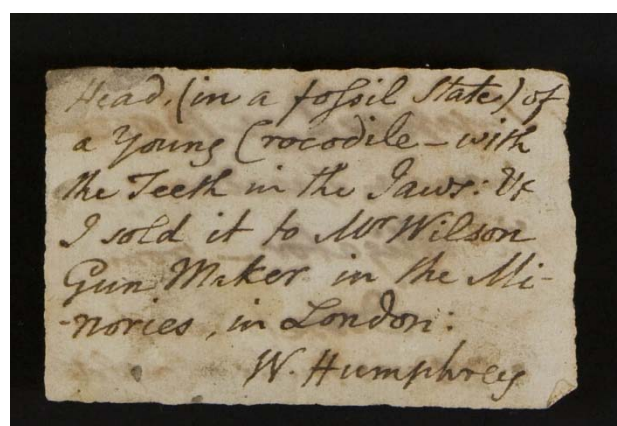 Head, (in a fossil State) of
a Young Crocodile – with
the Teeth in the Jaws:
I sold it to Mr Wilson
Gun Maker in the Mi-
-nories, in London:
W. Humphrey